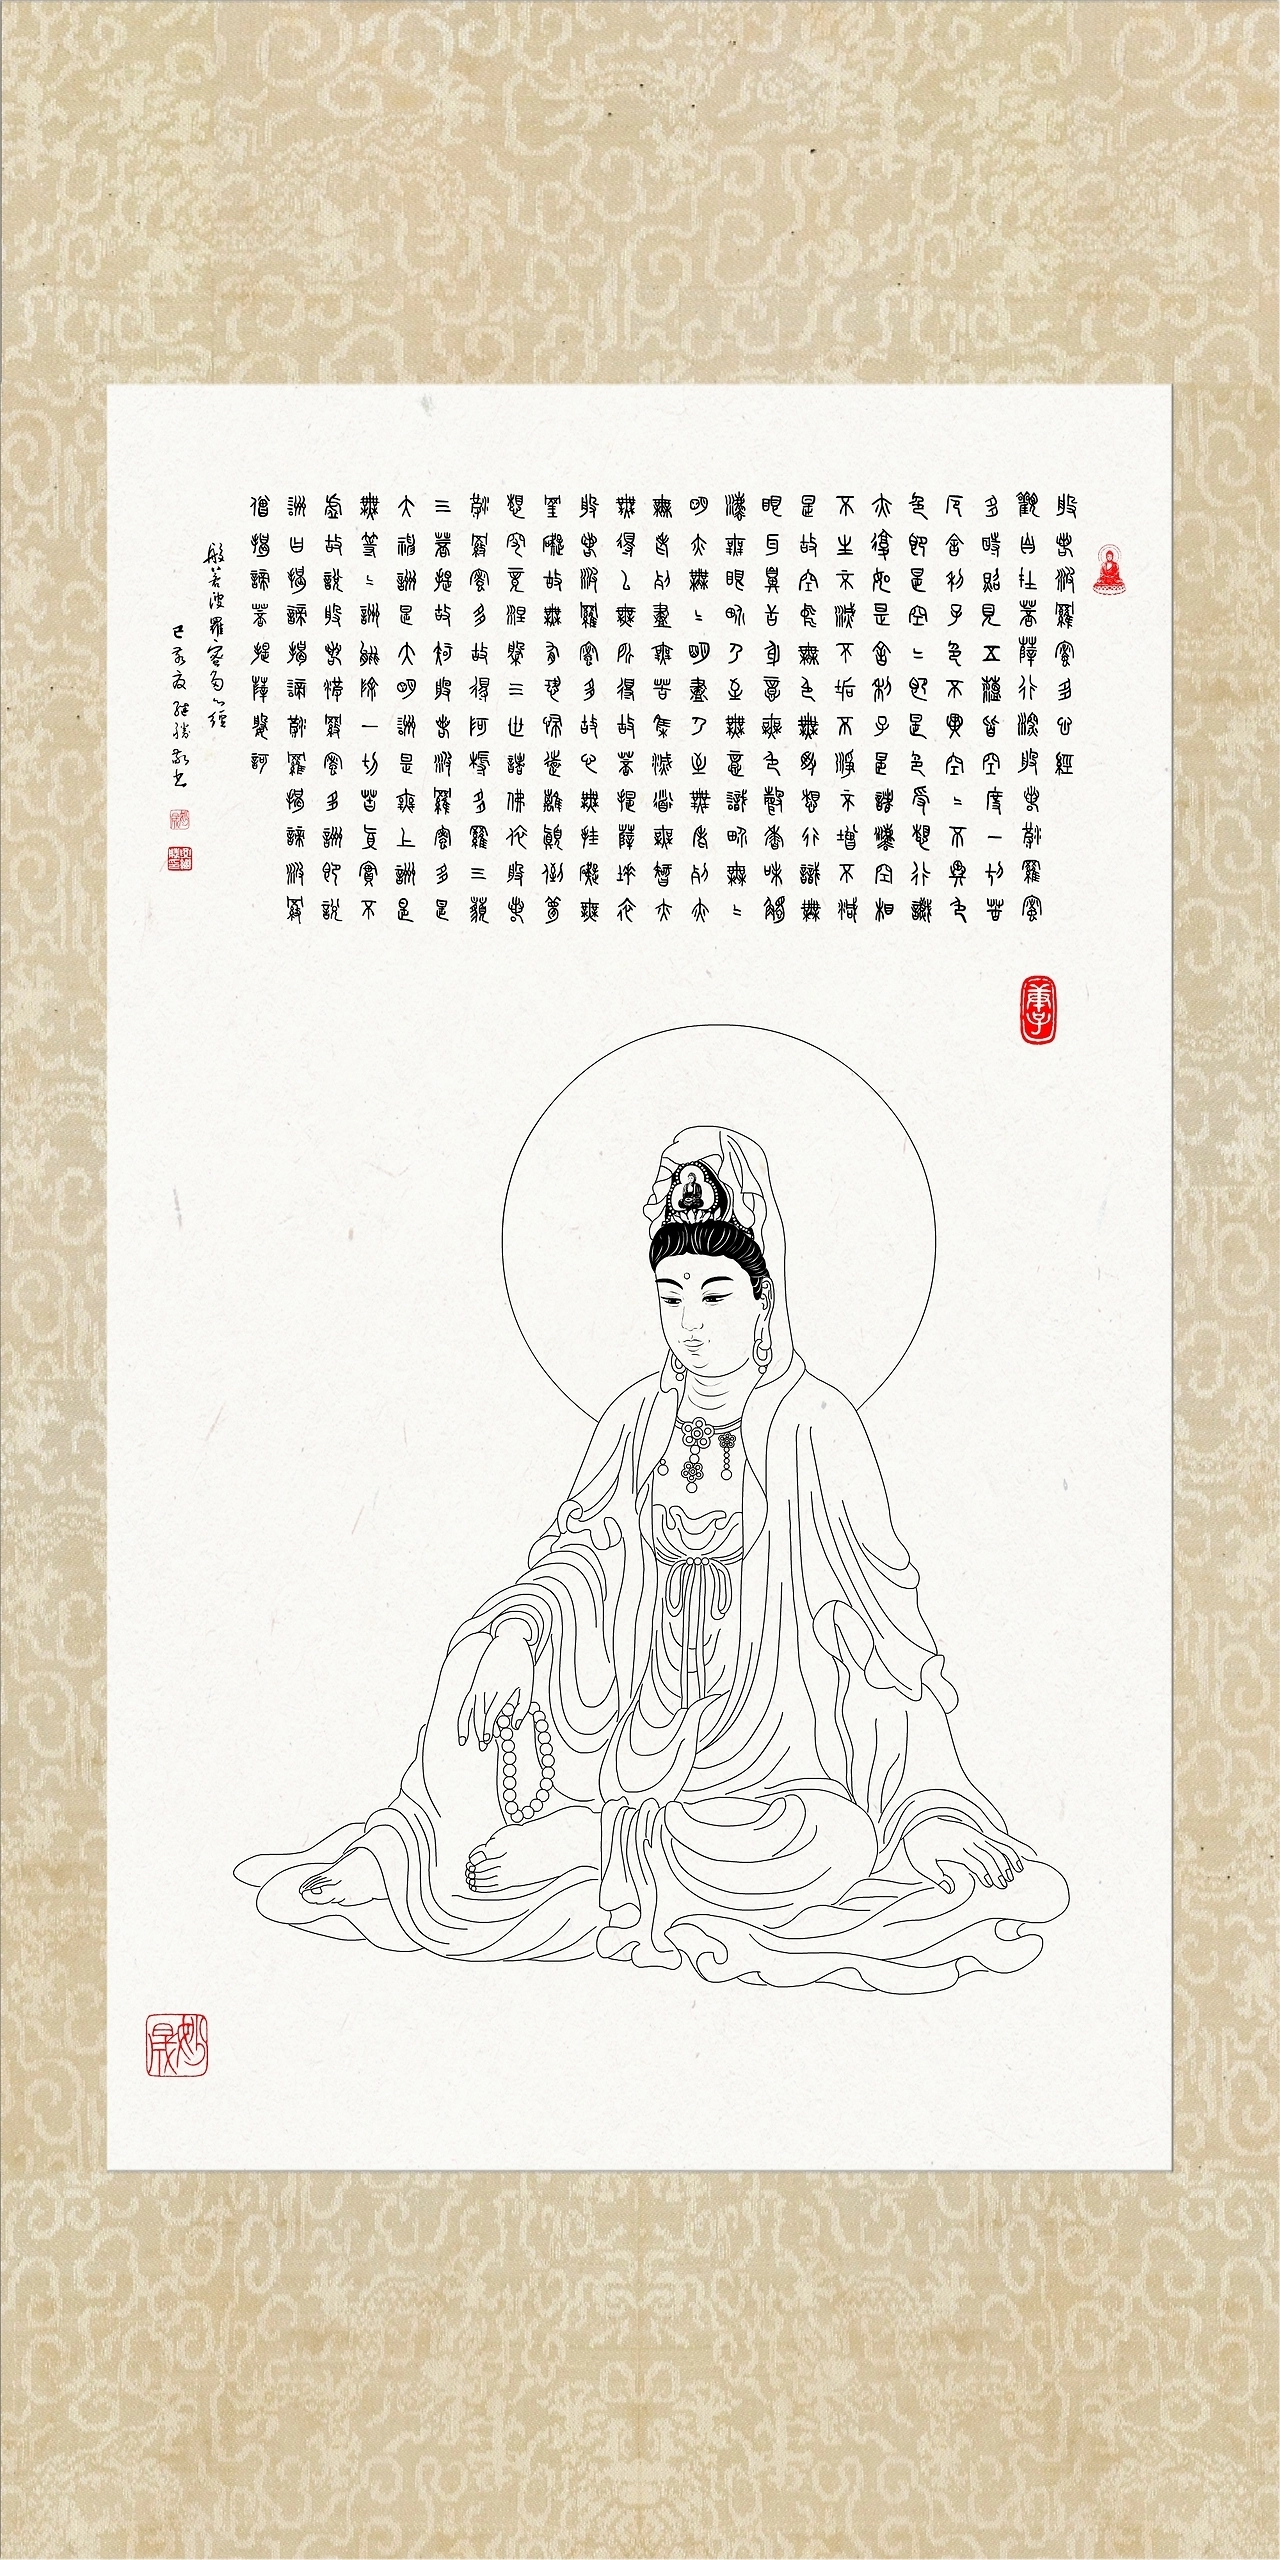 般若波羅蜜多心經
觀自在菩薩行深般若波羅蜜
多時照見五蘊皆空度一切苦
厄舍利子色不異空〻不異色
色即是空〻即是色受想行識
亦復如是舍利子是諸法空相
不生不滅不垢不淨不增不減
是故空中無色無受想行識無
眼耳鼻舌身意無色聲香味觸
法無眼界乃至無意識界無〻
明亦無〻明盡乃至無老死亦
無老死盡無苦集滅道無智亦
無得以無所得故菩提薩埵依
般若波羅蜜多故心無罣礙無
罣礙故無有恐怖遠離顛倒夢
想究竟涅槃三世諸佛依般若
波羅蜜多故得阿耨多羅三藐
三菩提故知般若波羅蜜多是
大神咒是大明咒是無上咒是
無等〻咒能除一切苦真實不
虛故說般若波羅蜜多咒即說
咒曰揭諦揭諦波羅揭諦波羅
僧揭諦菩提薩婆訶
般若波羅密多心經
己亥夏繼勝敬書
妙晟